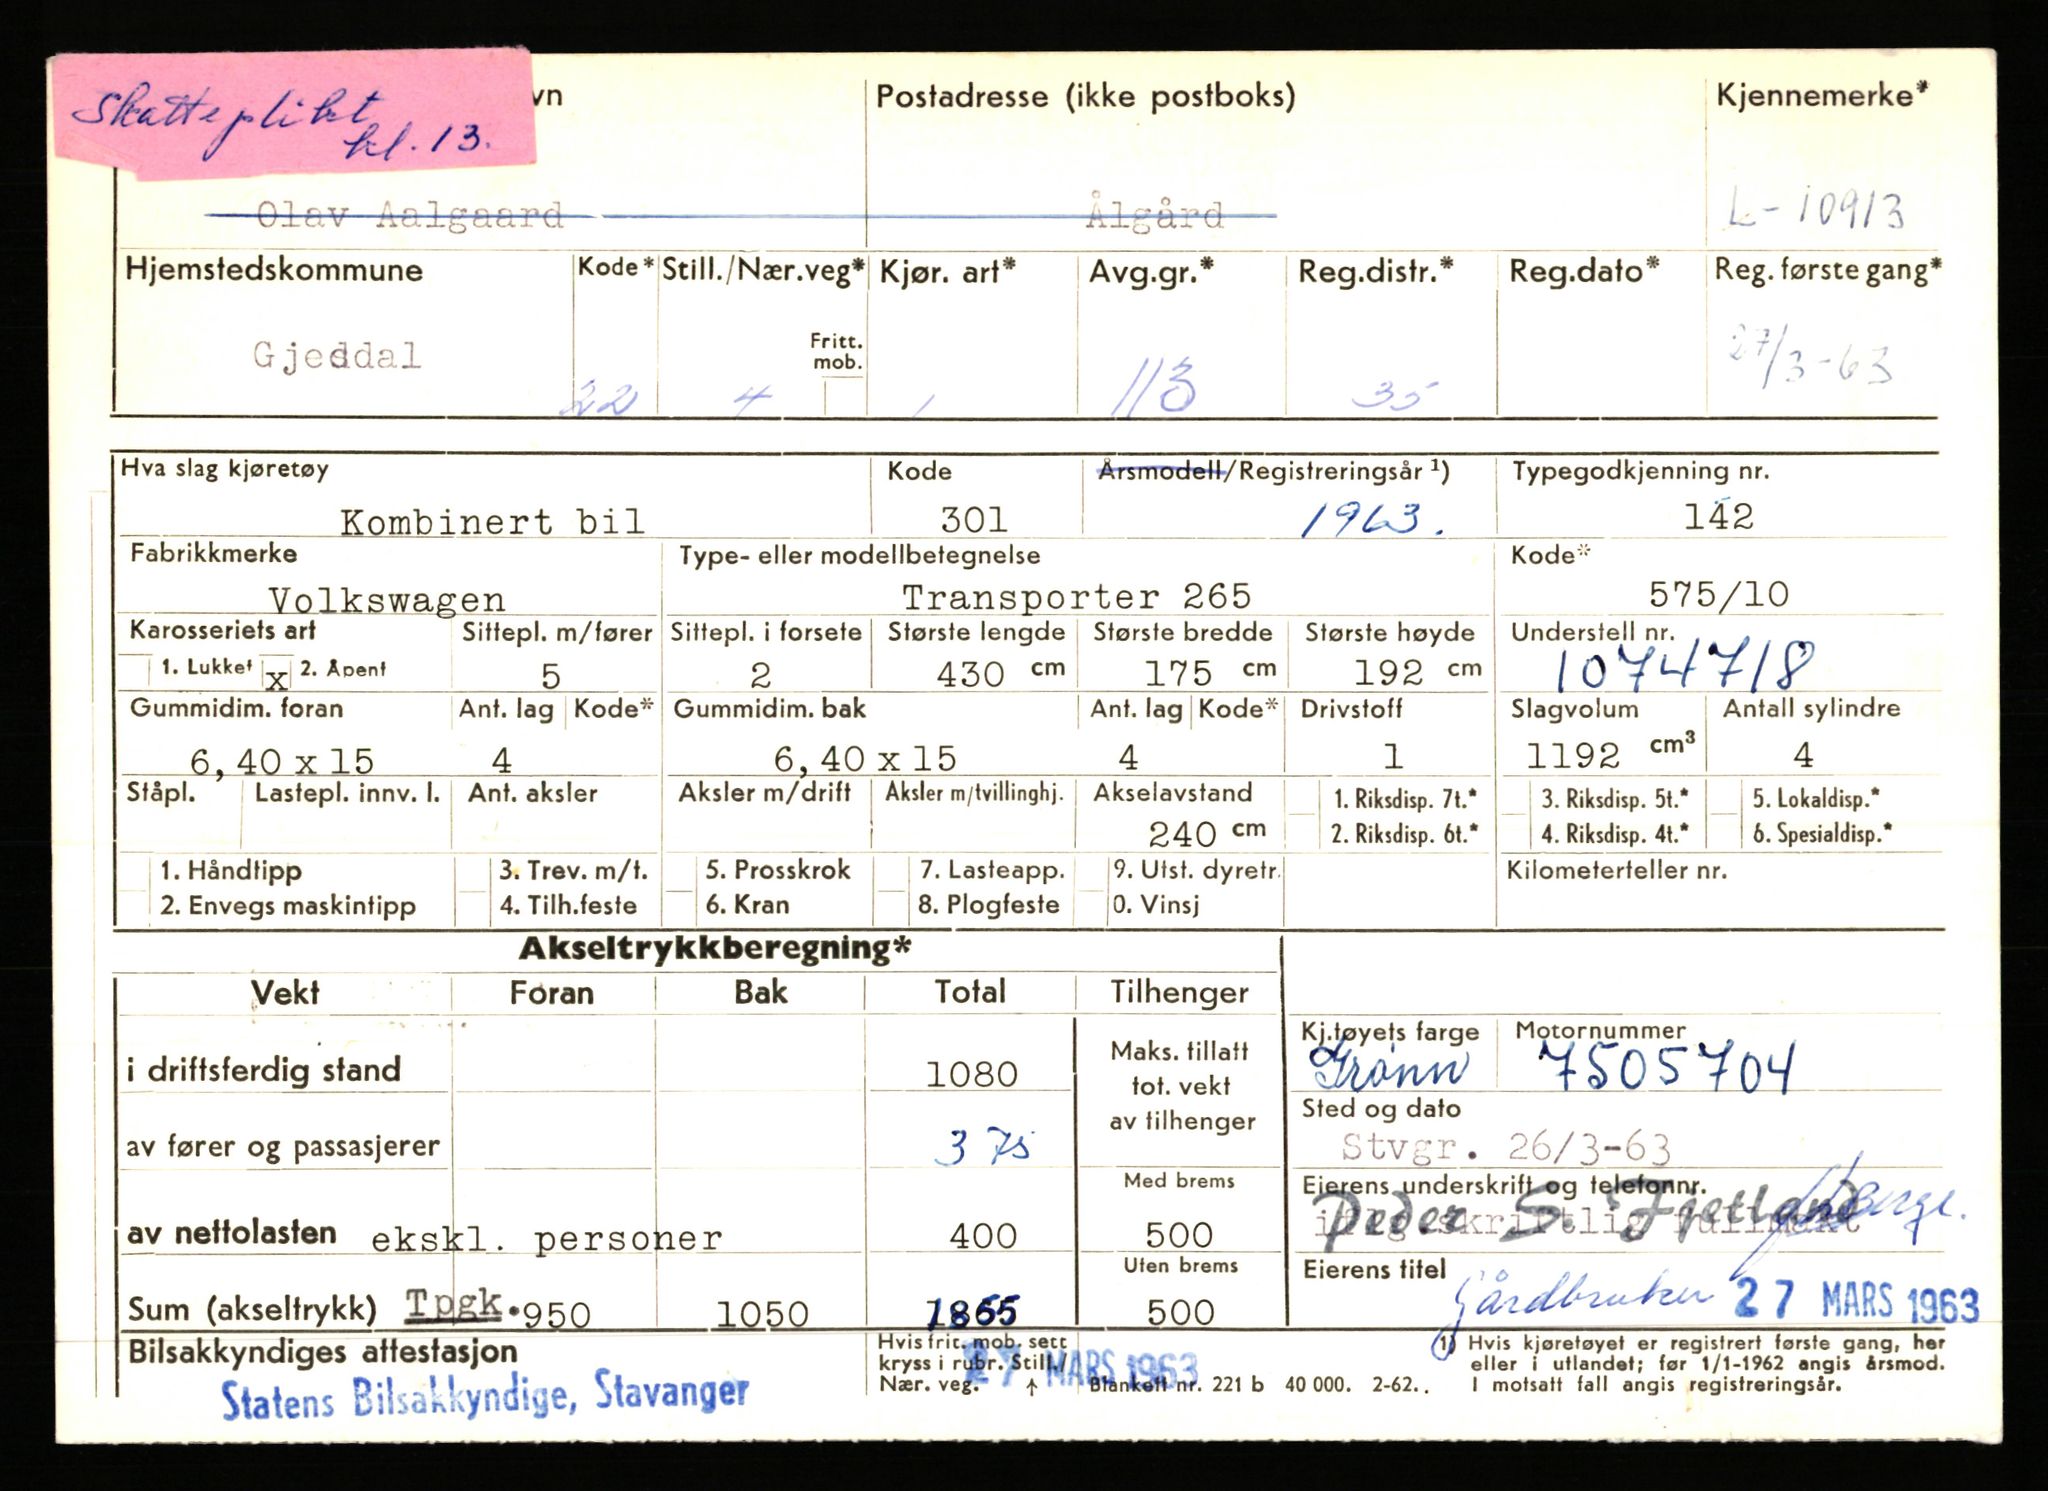 Skatteplikt
kl. 13.
vn Postadresse (ikke postboks) Kjennemerke*
Olav Aalgaard Ålgård L-10913
Hjemstedskommune Kode* Still./Nær.veg* Kjør. art* Avg.gr.* Reg.distr.* Reg.dato* Reg. første gang*
Fritt. mob.
Gjesdal 22 4 1 113 35 27/3-63
Hva slag kjøretøy Kode Årsmodell/Registreringsår ¹) Typegodkjenning nr.
Kombinert bil 301 1963. 142
Fabrikkmerke Type- eller modellbetegnelse Kode*
Volkswagen Transporter 265 575/10
Karosseriets art Sittepl. m/fører Sittepl. i forsete Største lengde Største bredde Største høyde Understell nr.
1. Lukket x 2. Åpent 5 2 430 cm 175 cm 192 cm 1074718
Gummidim. foran Ant. lag Kode* Gummidim. bak Ant. lag Kode* Drivstoff Slagvolum Antall sylindre
6,40 x 15 4 6,40 x 15 4 1 1192 cm³ 4
Ståpl. Lastepl. innv. l. Ant. aksler Aksler m/drift Aksler m/tvillinghj. Akselavstand 1. Riksdisp. 7t.* 3. Riksdisp. 5t.* 5. Lokaldisp.*
240 cm 2. Riksdisp. 6t.* 4. Riksdisp. 4t.* 6. Spesialdisp.*
1. Håndtipp 3. Trev. m/t. 5. Prosskrok 7. Lasteapp. 9. Utst. dyretr. Kilometerteller nr.
2. Envegs maskintipp 4. Tilh.feste 6. Kran 8. Plogfeste 0. Vinsj
Akseltrykkberegning*
Vekt Foran Bak Total Tilhenger
Kj.tøyets farge Motornummer
i driftsferdig stand 1080 Maks. tillatt tot. vekt av tilhenger Grønn 7505704
Sted og dato
av fører og passasjerer 375 Stvgr. 26/3-63
Med brems Eierens underskrift og telefonnr.
av nettolasten ekskl. personer 400 500 Peder S. Fjetland
iflg. skriftlig fullmakt
Uten brems Eierens titel
Sum (akseltrykk) Tpgk. 950 1050 1855 500 Gårdbruker 27 MARS 1963
Bilsakkyndiges attestasjon Hvis fritt. mob. sett kryss i rubr. Still./ Nær. veg. ↑
27 MARS 1963
Statens Bilsakkyndige, Stavanger
Blankett nr. 221 b 40 000. 2-62.
1) Hvis kjøretøyet er registrert første gang, her
eller i utlandet; før 1/1-1962 angis årsmod.
I motsatt fall angis registreringsår.